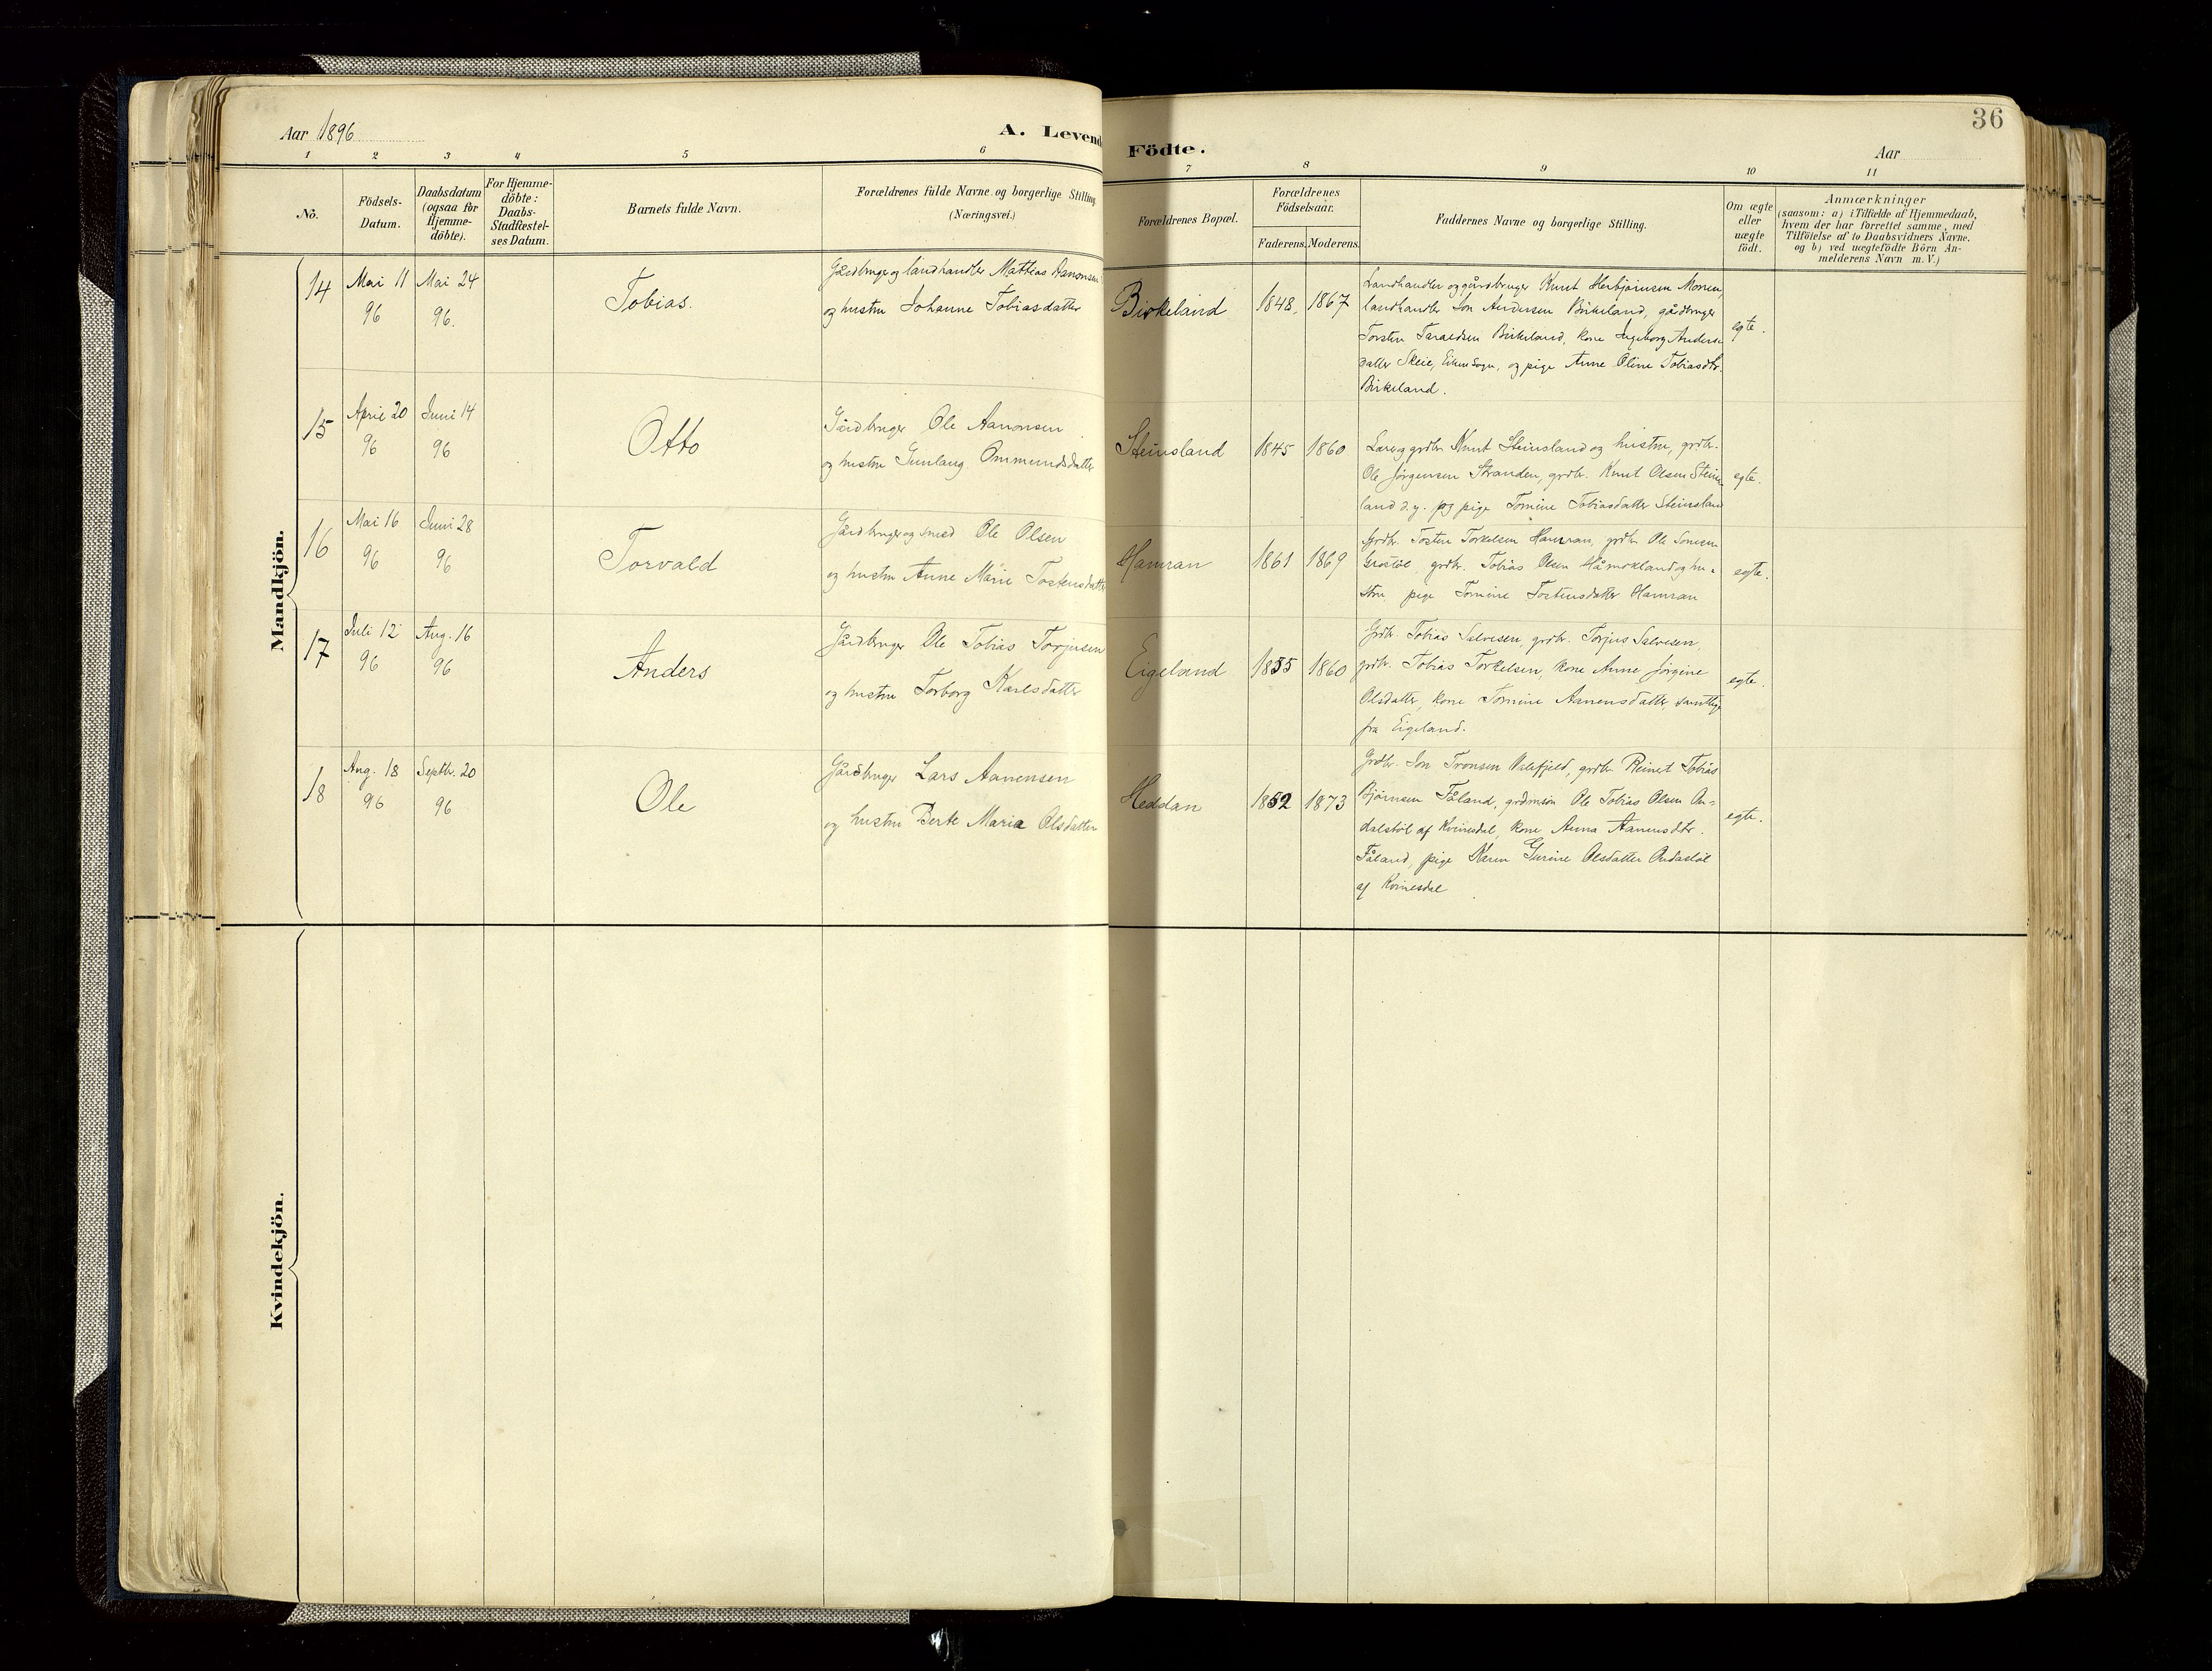 Aar 1896
A. Levend
Födte.
Aar
36
1 2 3 4 5 6 7 8 9 10 11
No.
Födsels-
Datum.
Daabsdatum
(ogsaa for
Hjemme-
döbte).
For Hjemme-
döbte:
Daabs-
Stadfæstel-
ses Datum.
Barnets fulde Navn.
Forældrenes fulde Navne og borgerlige Stilling
(Næringsvei.)
Forældrenes Bopæl.
Forældrenes
Födselsaar.
Faderens.
Moderens.
Faddernes Navne og borgerlige Stilling.
Om ægte
eller
uægte
födt.
Anmærkninger
(saasom: a) i Tilfælde af Hjemmedaab,
hvem der har forrettet samme, med
Tilföielse af to Daabsvidners Navne.
og b) ved uægtefödte Börn An-
melderens Navn m. V.)
Mandkjön.
14
Mai 11
96
Mai 24
96.
Tobias.
Gårdbruger og landhandler Mattias Aanonsen
og hustru Johanne Tobiasdatter
Birkeland
1848.
1867
Landhandler og gårdbruger Knut Herbjørnsen Monen,
landhandler Jon Andersen Birkeland, gårdbruger
Torsten Taraldsen Birkeland, kone Ingeborg Anders-
datter Skeie, Eiken sogn, og pige Anne Oline Tobiasdtr.
Birkeland.
egte.
15
April 20
96
Juni 14
96
Otto
Gårdbruger Ole Aanonsen
og hustru Gunlaug Ommundsdatter
Steinsland
1845
1860
Lærer og grdbr. Knut Steinsland og hustru, grdbr.
Ole Jørgensen Stranden, grdbr. Knut Olsen Steins-
land d.y. og pige Tomine Tobiasdatter Steinsland
egte.
16
Mai 16
96
Juni 28
96
Torvald
Gårdbruger og smed Ole Olsen
og hustru Anne Marie Tostensdatter
Hamran
1861
1869
Grdbr. Tosten Torkelsen Hamran, grdbr. Ole
grdbr. Tobias Olsen og hu-
stru pige Tomine Tostensdatter Hamran
egte.
17
Juli 12
96
Aug. 16
96
Anders
Gårdbruger Ole Tobias Torjusen
og hustru Torborg Karlsdatter
Eigeland
1855
1860
Grdbr. Tobias Salvesen, grdbr. Torjus Salvesen,
grdbr. Tobias Torkelsen, kone Anne Jørgine
Olsdatter, kone Tomine Aanensdatter, samtlige
fra Eigeland.
egte.
18
Aug. 18
96
Septbr. 20
96
Ole
Gårdbruger Lars Aanensen
og hustru Berte Maria Olsdatter
Heddan
1852
1873
Grdbr. Jon Tronsen, grdbr. Reinert Tobias
Bjørnsen Fåland, grdmsøn Ole Tobias Olsen An-
dalstøl af Kvinesdal, kone Anna Aanensdtr.
Fåland, pige Karen Gurine Olsdatter
af Kvinesdal
egte.
Kvindekjön.